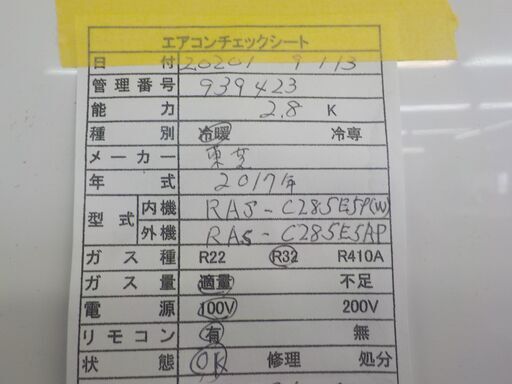 エアコンチェックシート
日 付 20201 9 113
管理番号 939423
能 力 2.8 K
種 別 冷暖 冷専
メーカー 東芝
年 式 2017年
型式 内機 RAS-C285E5P(W)
外機 RAS-C285E5AP
ガス種 R22 R32 R410A
ガス量 適量 不足
電 源 100V 200V
リモコン 有 無
状 態 OK 修理 処分